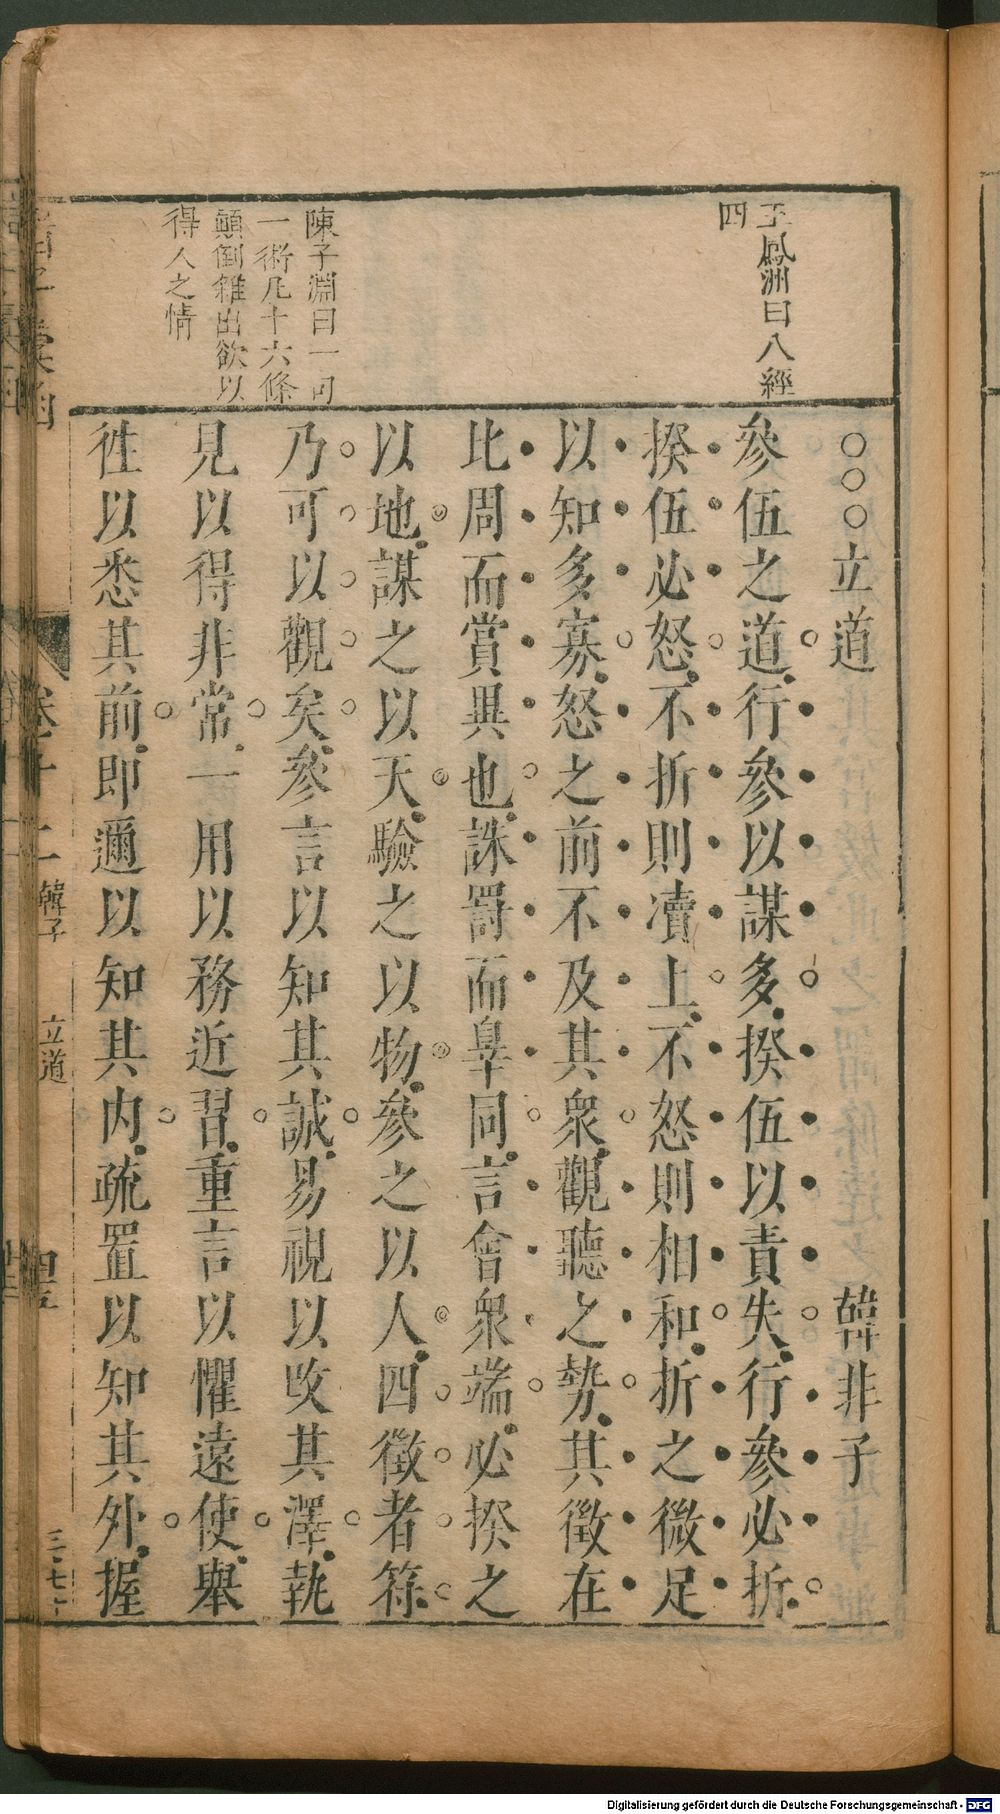 王鳳洲曰八經
四
陳子淵曰一司
一術凡十六條
顛倒雜出欲以
得人之情
○○○立道　韓非子
參伍之道行參以謀多揆伍以責失行參必折
揆伍必怒不折則瀆上不怒則相和折之微足
以知多寡怒之前不及其衆觀聽之勢其徵在
比周而賞異也誅罰而辠同言會衆端必揆之
以地謀之以天驗之以物參之以人四徵者符
乃可以觀矣參言以知其誠易視以攺其澤執
見以得非常一用以務近習重言以懼遠使舉
徃以悉其前即邇以知其內疏置以知其外握
卷十二 韓子 立道
Digitalisierung gefördert durch die Deutsche Forschungsgemeinschaft - DFG